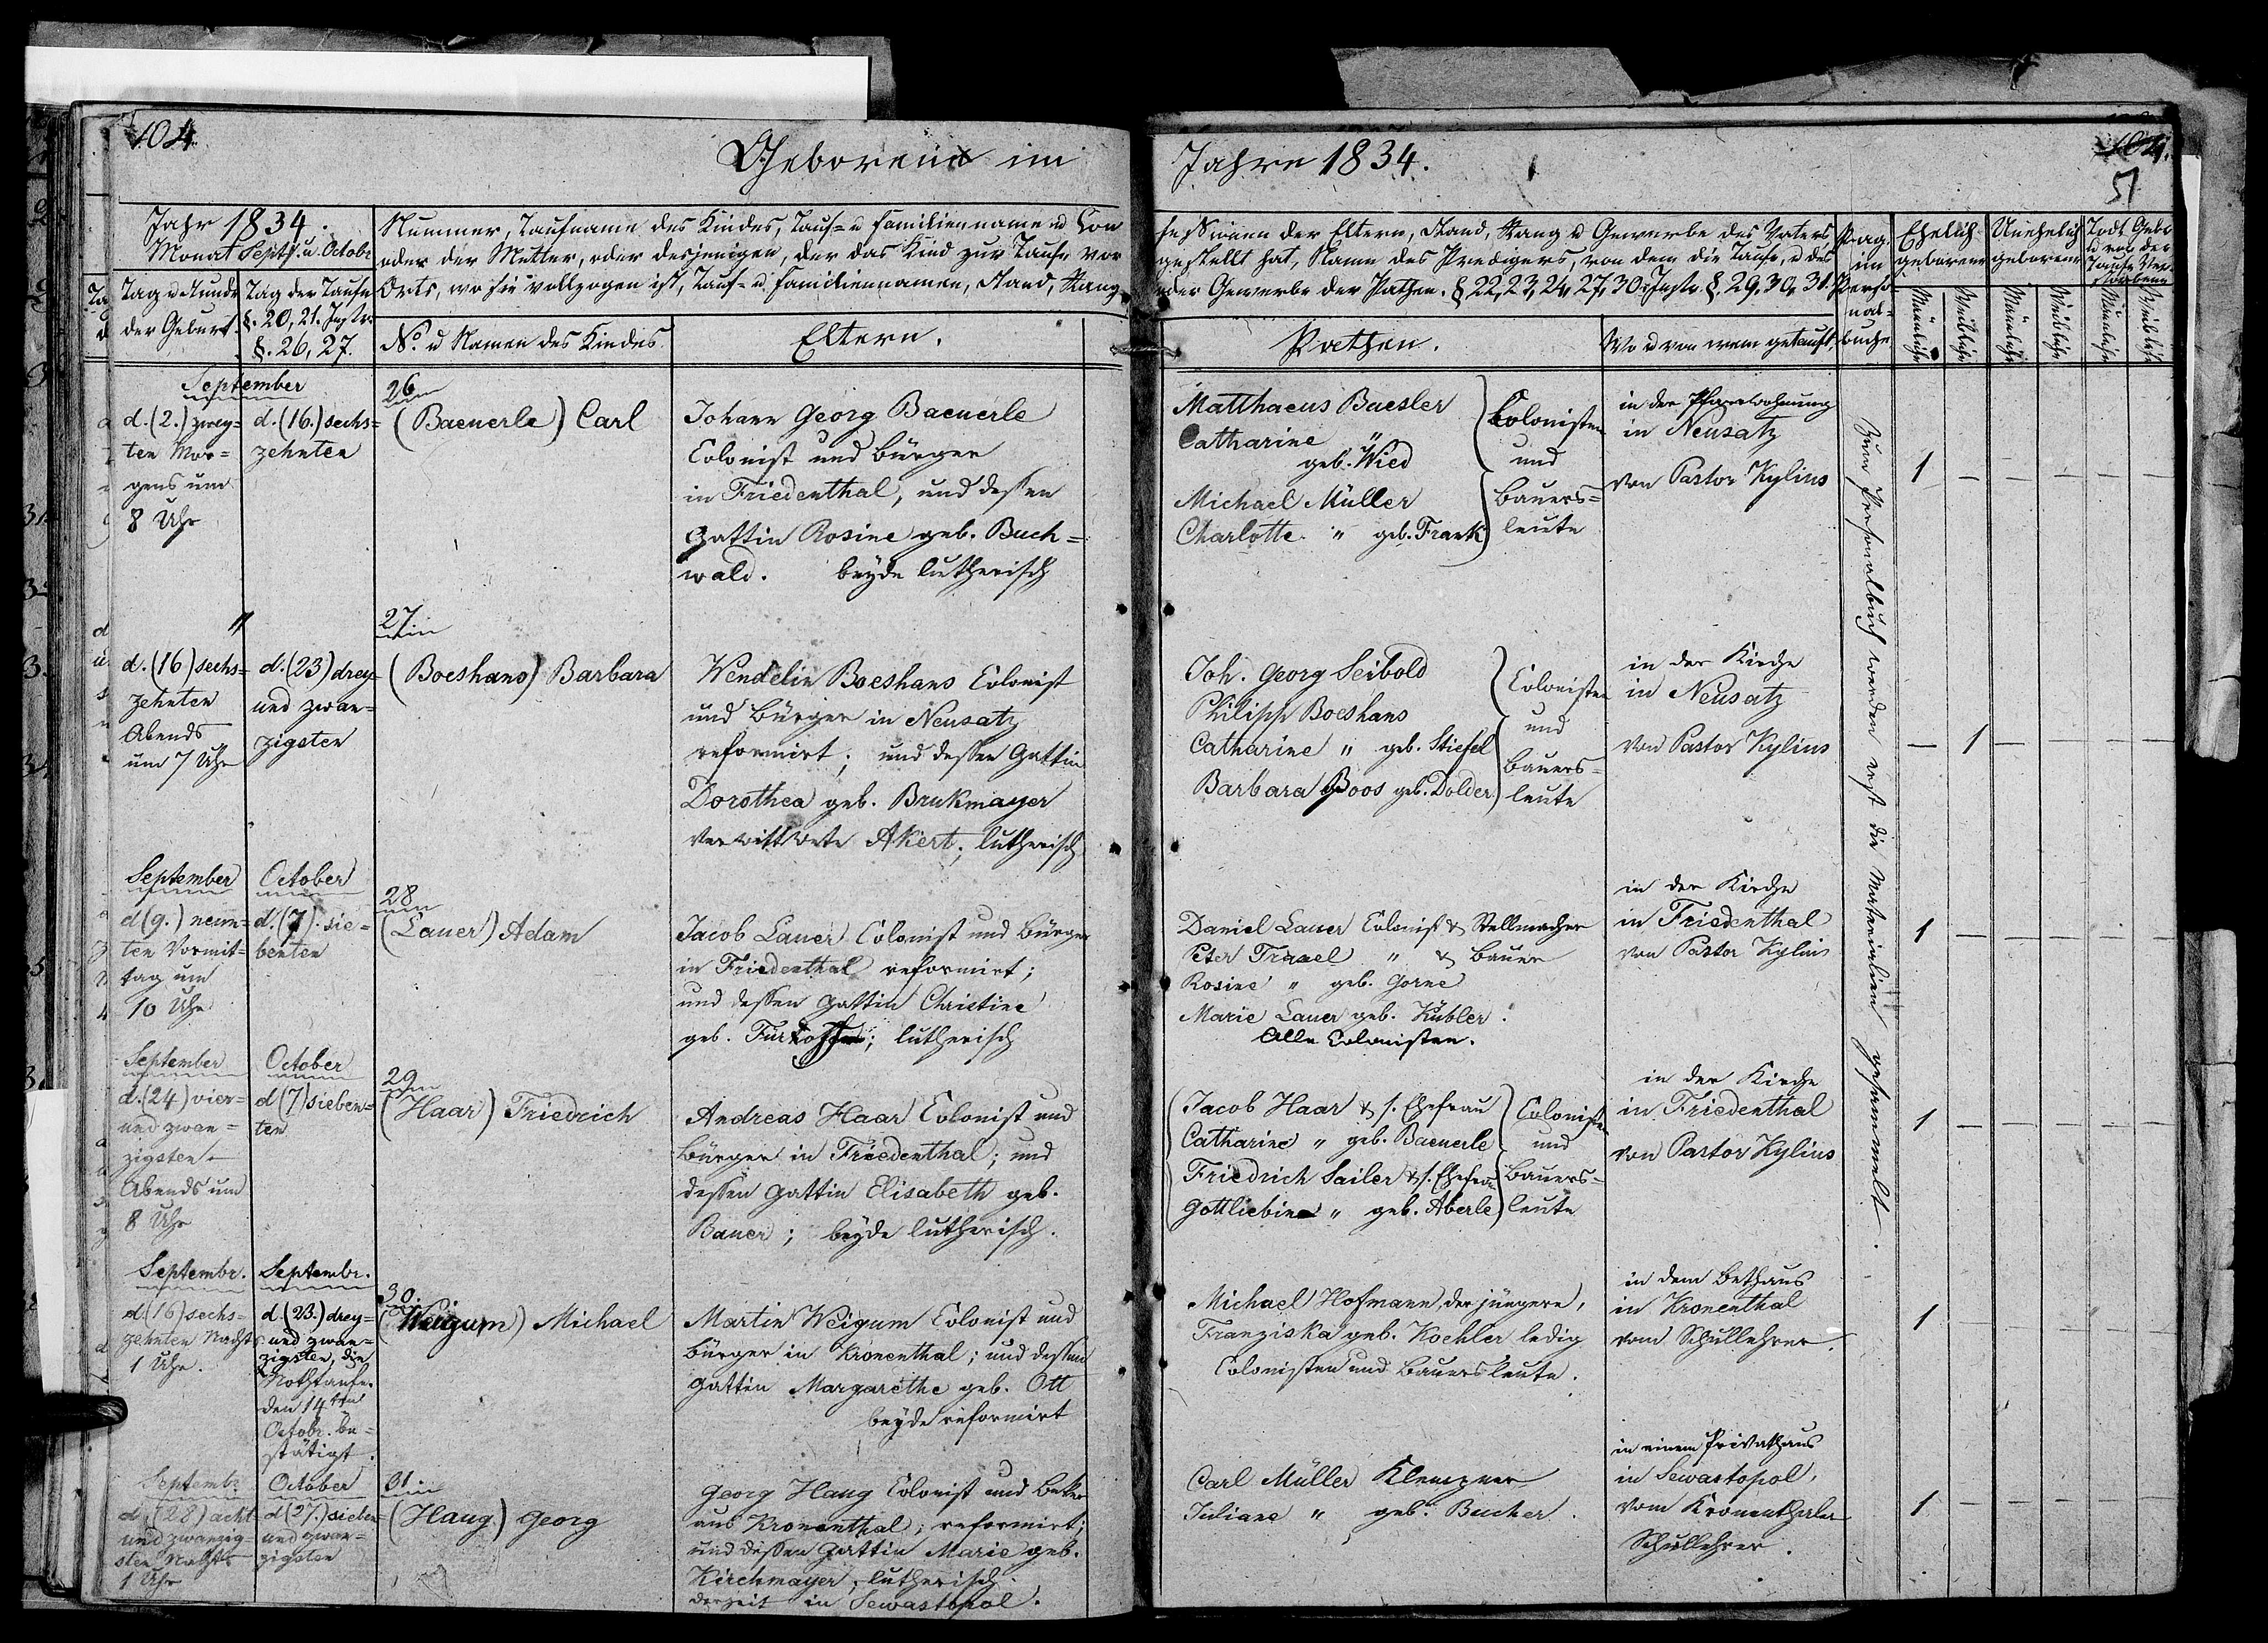 104.
Geborene im
Jahr 1834.
Monat Septb. u. Octobr
Nummer, Taufname des Kindes, Tauf- u Familienname u Con
oder der Mutter, oder desjenigen, der das Kind zur Taufe vor
Orts, wo sie vollzogen ist, Tauf- u Familiennamen, Stand, Rang
Tag u Stunde
der Geburt.
Tag der Taufe
§. 20, 21. Instr.
§. 26, 27.
No. u Namen des Kindes.
Eltern.
September
d. (2.) zwey=
ten Mor=
gens um
8 Uhr
d. (16.) sechs=
zehnten
26
(Baeuerle) Carl
Johann Georg Baeuerle
Colonist und Bürger
in Friedenthal, und dessen
Gattin Rosine geb. Buch=
wald. beyde lutherisch
"
d. (16) sechs=
zehnten
Abends
um 7 Uhr
d. (23) drey=
und zwan=
zigsten
27
(Boeshans) Barbara
Wendelin Boeshans Colonist
und Bürger in Neusatz
reformirt; und dessen Gattin
Dorothea geb. Brukmayer
verwittwete Akert; lutherisch
September
d (9.) neun=
ten Vormit=
tag um
10 Uhr
October
d. (7). sie=
benten
28
(Lauer) Adam
Jacob Lauer Colonist und Bürger
in Friedenthal reformirt;
und dessen Gattin Christine
geb. lutherisch
September
d. (24) vier=
und zwan=
zigsten
Abends um
8 Uhr
October
d (7) sieben=
ten
29
(Haar) Friedrich
Andreas Haar Colonist und
Bürger in Friedenthal; und
dessen Gattin Elisabeth geb.
Bauer; beyde lutherisch.
Septembr.
d. (16) sechs=
zehnten Nachts
1 Uhr.
Septembr.
d. (23.) drey=
und zwan=
zigsten, die
Nothtaufe.
den 14ten
Octobr. be=
stätigt.
30.
(Weigum) Michael
Martin Weigum Colonist und
Bürger in Kronenthal; und dessen
Gattin Margarethe geb. Ott
beyde reformirt
Septembr.
d. (28) acht
und zwanzig
sten Nachts
1 Uhr
October
d (27.) sieben=
und zwan=
zigsten
31
(Haug) Georg
Georg Haug Colonist und
aus Kronenthal; reformirt;
und dessen Gattin Marie geb.
Kirchmayer; lutherisch.
derzeit in Sewastopol.
Jahre 1834.
104.
51
fessionen der Eltern, Stand, Rang u Gewerbe des Vaters,
gestellt hat, Name des Predigers, von dem die Taufe, u des
oder Gewerbe der Pathen. § 22, 23, 24, 27, 30. Instr. §. 29, 30, 31.
Pathen.
Wo u von wem getauft.
Pag.
im
Perso=
nal=
buche
Ehelich
geborene
Unehelich
geborene
Todt Gebo
u vor der
Taufe Ver=
storbene
Männliche
Weibliche
Männliche
Weibliche
Männliche
Weibliche
Matthaeus Baesler
Catharine "
geb. Wied
Michael Müller
Charlotte " geb. Frank
Colonisten
und
Bauers=
leute
in der Pfarrwohnung
in Neusatz
von Pastor Kylius
1 — — — — —
Joh. Georg Seibold
Philipp Boeshans
Catharine " geb. Stiefel
Barbara Boos geb. Dolder
Colonisten
und
Bauers=
leute
in der Kirche
in Neusatz
von Pastor Kylius
— 1 — — — —
Daniel Lauer Colonist & Stellmacher
Peter " & Bauer
Rosine " geb. Gorne
Marie Lauer geb. Kübler.
Alle Colonisten.
in der Kirche
in Friedenthal
von Pastor Kylius
1 — — — — —
Jacob Haar & s. Ehefrau
Catharine " geb. Baeuerle
Friedrich Sailer & s. Ehefrau
Gottliebine " geb. Aberle
Colonisten
und
Bauers=
leute
in der Kirche
in Friedenthal
von Pastor Kylius
1 — — — — —
Michael Hofmann, der jüngere,
Franziska geb. Koehler ledig
Colonisten und Bauersleute.
in dem Bethaus
in Kronenthal
vom Schullehrer.
1 — — — — —
Carl Müller Klempner
Juliane " geb. Bucher.
in einem Privathaus
in Sewastopol,
vom Kronenthaler
Schullehrer.
1 — — — — —
Zum Personalbuch werden erst die Materialien gesammelt.